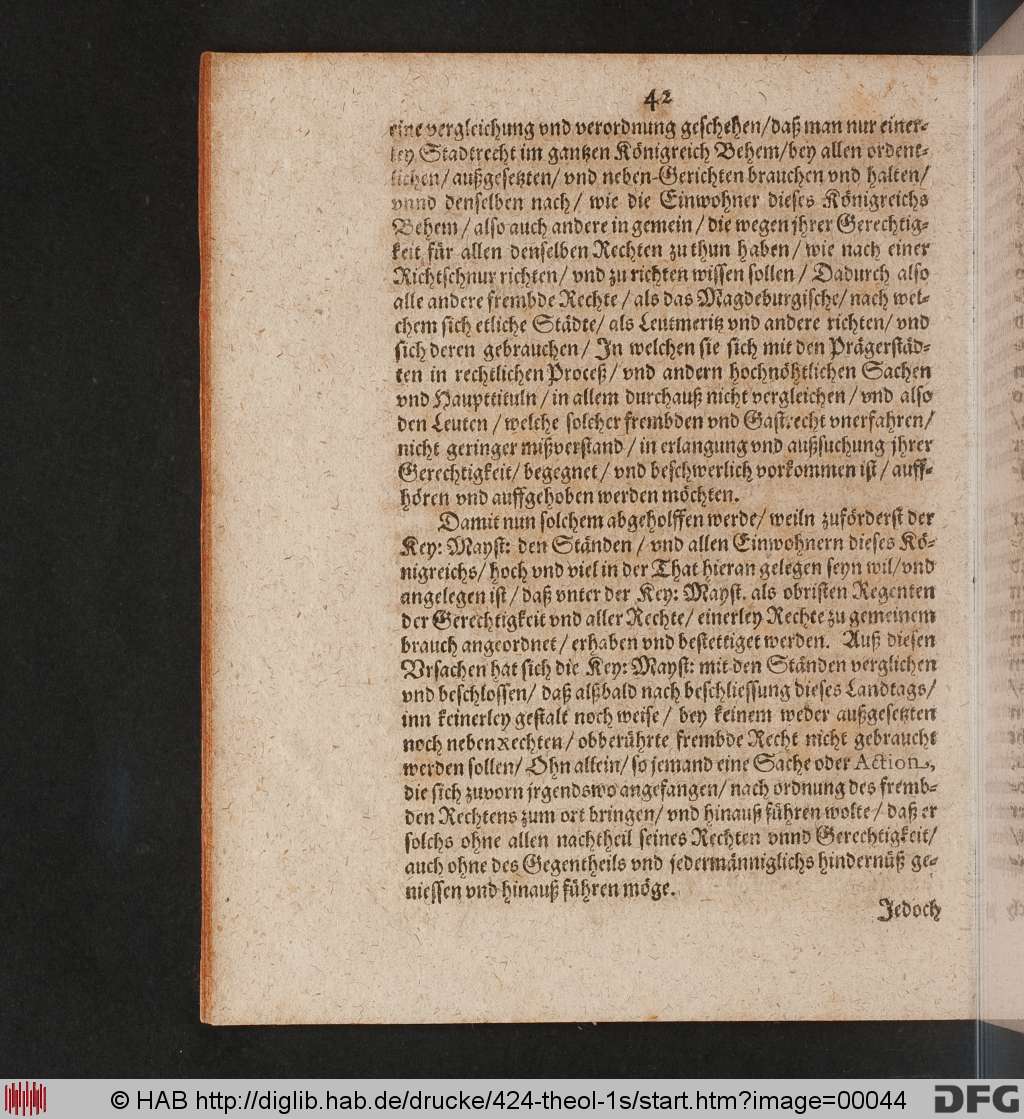 42
eine vergleichung vnd verordnung geschehen/daß man nur einer-
ley Stadtrecht im gantzen Königreich Behem/bey allen ordent-
lichen/außgesetzten/vnd neben-Gerichten brauchen vnd halten/
vnnd denselben nach/ wie die Einwohner dieses Königreichs
Behem/also auch andere in gemein/die wegen jhrer Gerechtig-
keit für allen denselben Rechten zu thun haben/ wie nach einer
Richtschnur richten/ vnd zu richten wissen sollen/ Dadurch also
alle andere frembde Rechte/als das Magdeburgische/nach wel-
chem sich etliche Städte/ als Leutmeritz vnd andere richten/ vnd
sich deren gebrauchen/ In welchen sie sich mit den Prägerstäd-
ten in rechtlichen Proceß/ vnd andern hochnöhtlichen Sachen
vnd Haupttituln/in allem durchauß nicht vergleichen/vnd also
den Leuten/welche solcher frembden vnd Gastrecht vnerfahren/
nicht geringer mißverstand/in erlangung vnd außsuchung jhrer
Gerechtigkeit/begegnet/ vnd beschwerlich vorkommen ist/ auff-
hören vnd auffgehoben werden möchten.
Damit nun solchem abgeholffen werde/ weiln zuförderst der
Key: Mayst: den Ständen/ vnd allen Einwohnern dieses Kö-
nigreichs/hoch vnd viel in der That hieran gelegen seyn wil/vnd
angelegen ist/daß vnter der Key: Mayst. als obristen Regenten
der Gerechtigkeit vnd aller Rechte/ einerley Rechte zu gemeinem
brauch angeordnet/erhaben vnd bestettiget werden. Auß diesen
Vrsachen hat sich die Key: Mayst: mit den Ständen verglichen
vnd beschlossen/ daß alßbald nach beschliessung dieses Landtags/
inn keinerley gestalt noch weise/ bey keinem weder außgesetzten
noch neben Rechten/ obberührte frembde Recht nicht gebraucht
werden sollen/Ohn allein/so jemand eine Sache oder Action,
die sich zuvorn jrgendswo angefangen/nach ordnung des fremb-
den Rechtens zum ort bringen/vnd hinauß führen wolte/ daß er
solchs ohne allen nachtheil seines Rechten vnnd Gerechtigkeit/
auch ohne des Gegentheils vnd jedermänniglichs hindernüß ge-
niessen vnd hinauß führen möge.
Jedoch
© HAB http://diglib.hab.de/drucke/424-theol-1s/start.htm?image=00044
DFG